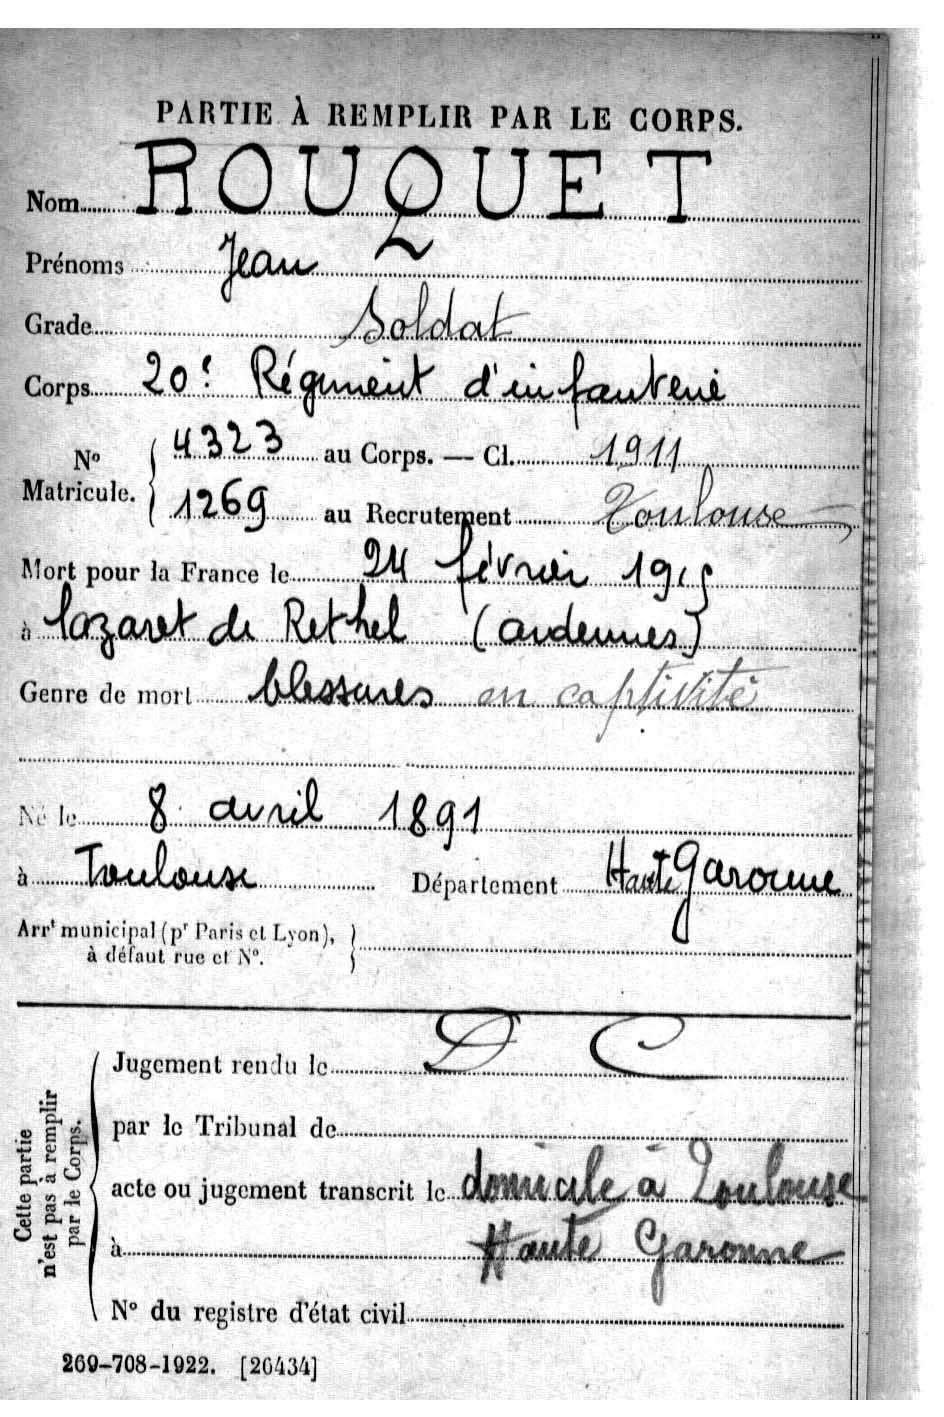 PARTIE À REMPLIR PAR LE CORPS.
Nom ROUQUET
Prénoms Jean
Grade Soldat
Corps 20e Régiment d'infanterie
N° Matricule. 4323 au Corps. — Cl. 1911
1269 au Recrutement Toulouse
Mort pour la France le 24 février 1915
à lazaret de Rethel (ardennes)
Genre de mort blessures en captivité
Né le 8 avril 1891
à Toulouse Département Haute Garonne
Arrt municipal (pr Paris et Lyon),
à défaut rue et N°.
Cette partie n'est pas à remplir par le Corps.
Jugement rendu le D C
par le Tribunal de
acte ou jugement transcrit le domicile à Toulouse
à Haute Garonne
N° du registre d'état civil
269-708-1922. [26434]